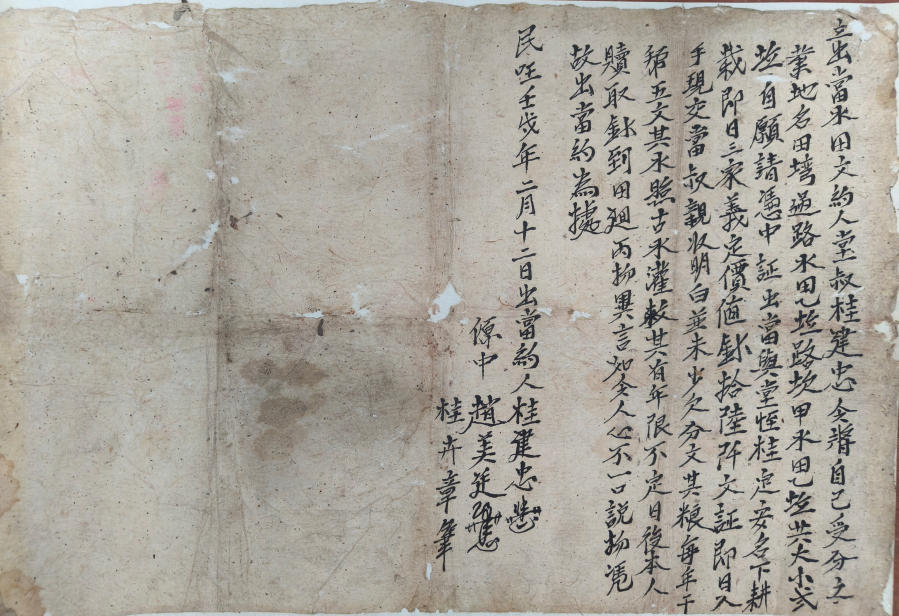 立出當水田文約人堂叔桂建忠今將自己受分之
業地名田塆過路水田乙坵路坎甲水田乙坵共大小弍
坵自願請憑中証出當與堂侄桂定安名下耕
栽即日三家義定價值錢拾陸仟文証即日入
手現交當叔親收明白並未少欠分文其粮每年干
五文其水照古水灌其有年限不定日後本人
贖取錢到田廻丙物異言如今人心不一口說物凴
故出當約為據
民囯壬戌年二月十二日出當約人桂建忠
凴中趙美廷
桂卉章筆